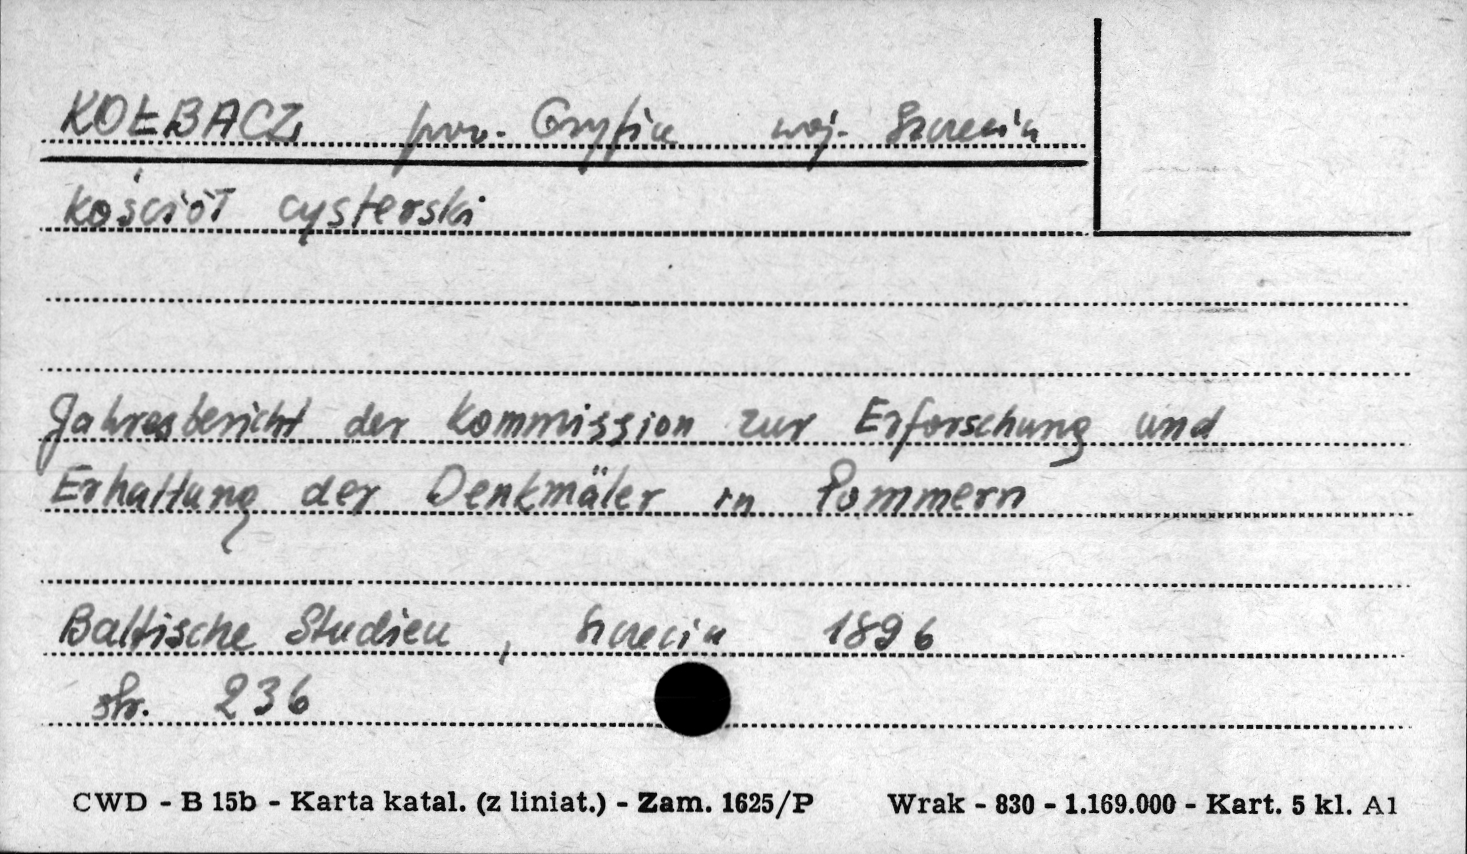 KOŁBACZ pow. Gryfin woj. Szczecin
kościół cysterski
Jahresbericht der Kommission zur Erforschung und
Erhaltung der Denkmäler in Pommern
Baltische Studien, Szczecin 1896
str. 236
CWD - B 15b - Karta katal. (z liniat.) - Zam. 1625/P Wrak - 830 - 1.169.000 - Kart. 5 kl. A1